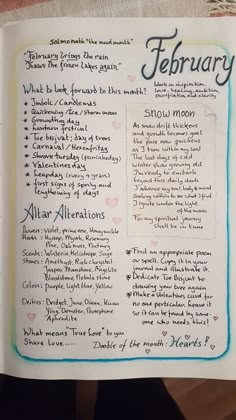 Solmonath "the mud month"
February
"February brings the rain
Thaws the frozen lakes again"
Work on inspiration,
love, healing,
purification and clarity
What to look forward to this month?
* Imbolc / Candlemas
* Quickening / Ice / Storm moon
* Groundhog day
* Lantern festival
* Tu bisvat; day of trees
* Carnaval / Hexennacht
* Shrove tuesday (pancakeday)
* Valentines day
* Leapday (every 4 years)
* first signs of spring and
lengthening of days
Snow moon
As snow drift thickens
and ground becomes
the pace now quickens
as I turn within my soul
The last days of cold
winter draw growing old
I'm ready to embark
beyond this daily dark
I advance my body & mind
Seeking within to
I ignite under the light
of the moon
For my spiritual journey
shall
Altar Alterations
Flowers: violet, primrose,
Herbs: Hyssop, Myrrh, Rosemary
Scents: Wisteria, Heliotrope, Sage
Stones: Amethyst, Rock chrystal
Jasper,
Colors: purple, light blue, Yellow
Deities: Brigit, Juno, Diana, Kuan
Yin, Demeter, Persephone
Aphrodite
* Find an appropriate poem
or spell. Copy it in your
journal and illustrate it.
* Dedicate Tu Bisvat to
drawing your tree again
* Make a Valentines card for
no one perticular. Leave it
so it can be found by some-
one who needs this!
What means "True Love" to you
Share Love....
Doodle of the month: Hearts!